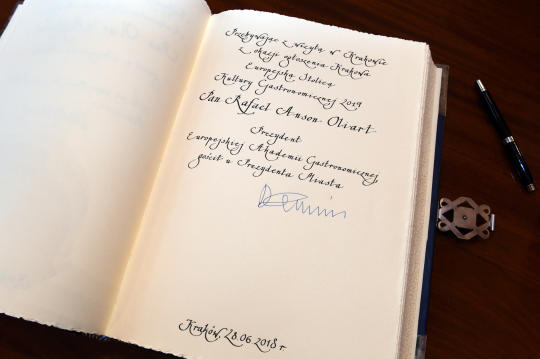 Przebywając z wizytą w Krakowie
z okazji ogłoszenia Krakowa
Europejską Stolicą
Kultury Gastronomicznej 2019
Pan Rafael Anson Oliart
Prezydent
Europejskiej Akademii Gastronomicznej,
gościł u Prezydenta Miasta
Kraków, 28.06 2018 r.